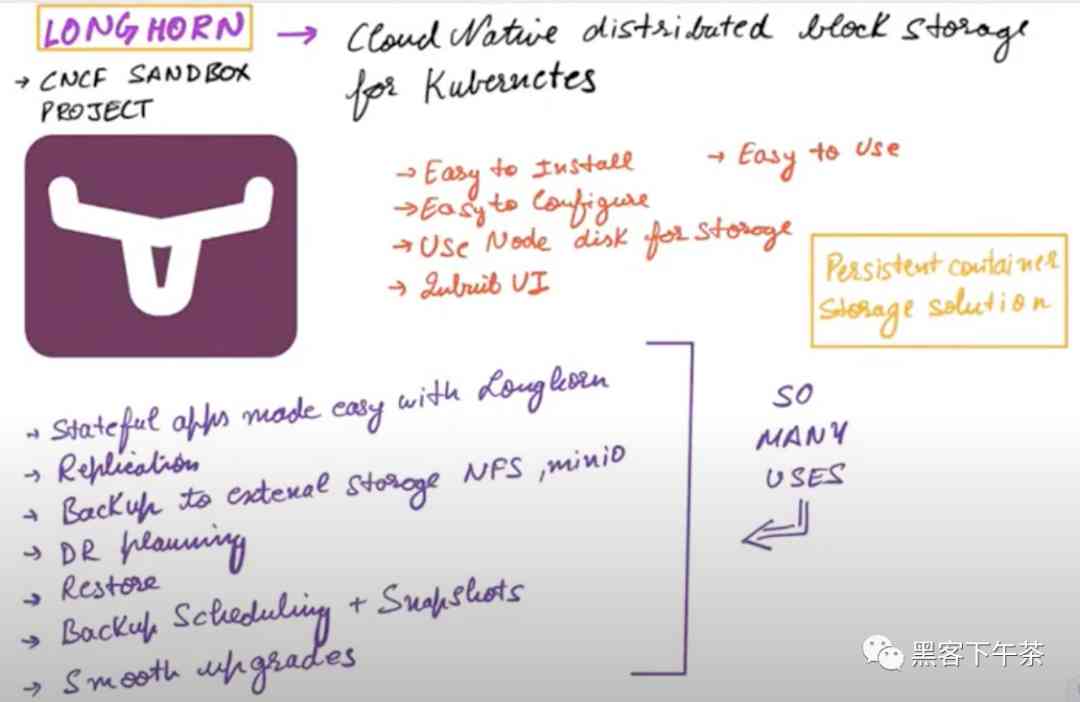 LONGHORN → Cloud Native distributed block storage
for Kubernetes
→ CNCF SANDBOX
PROJECT
→ Easy to Install
→ Easy to Use
→ Easy to Configure
→ Use Node disk for storage
→ UI
Persistent container
Storage solution
→ Stateful apps made easy with Longhorn
→ Replication
→ Backup to extenal storage NFS, minio
→ DR planning
→ Restore
→ Backup Scheduling + Snapshots
→ Smooth upgrades
SO
MANY
USES
黑客下午茶